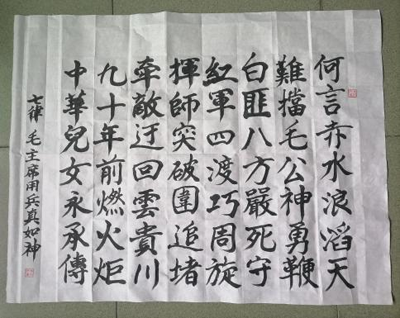 何言赤水浪滔天
難擋毛公神勇鞭
白匪八方嚴死守
紅軍四渡巧周旋
揮師突破圍追堵
牽敵迂回雲貴川
九十年前燃火炬
中華兒女永承傳
七律 毛主席用兵真如神